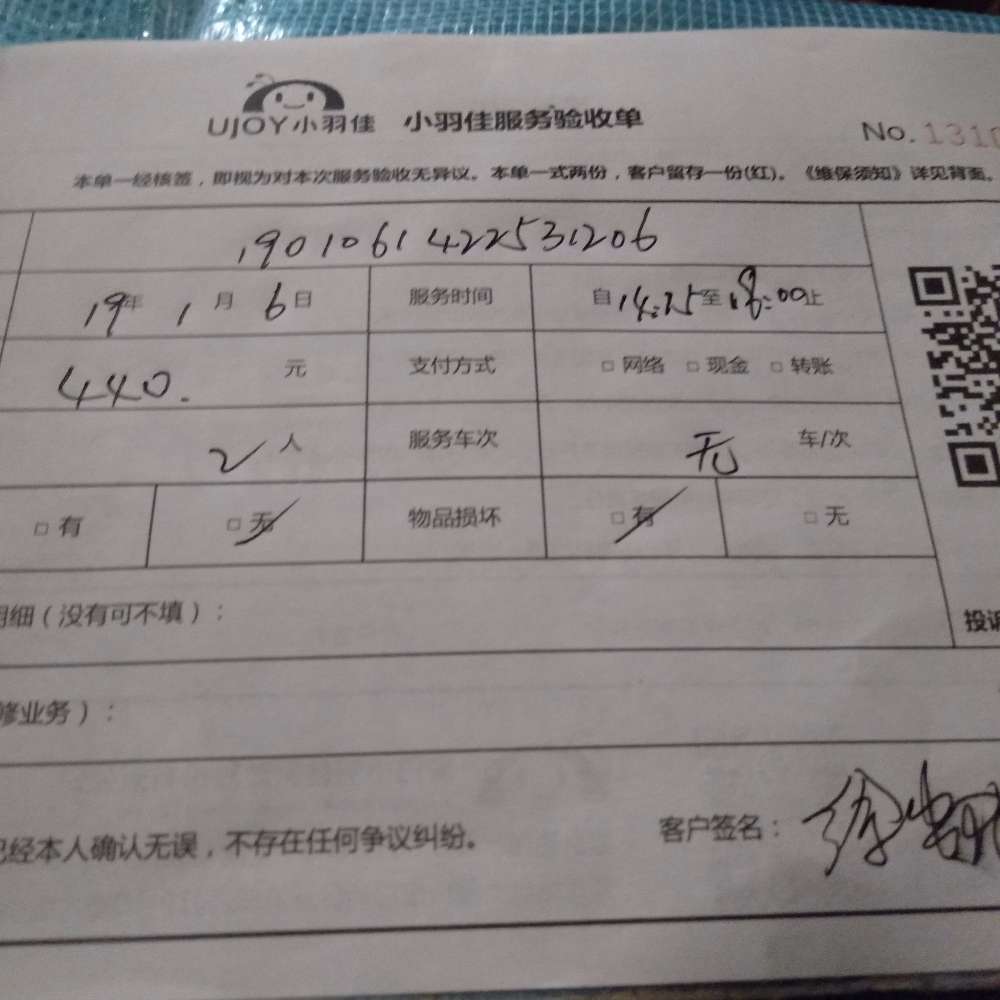 UJOY小羽佳 小羽佳服务验收单
No.1310
本单一经核签，即视为对本次服务验收无异议。本单一式两份，客户留存一份(红)。《维保须知》详见背面。
1901061422531206
19年 1月 6日 服务时间 自14:25至18:00止
440. 元 支付方式 □ 网络 □ 现金 □ 转账
2人 服务车次 无 车/次
□ 有 □ 无 物品损坏 □ 有 □ 无
明细（没有可不填）：
投诉
修业务）：
已经本人确认无误，不存在任何争议纠纷。 客户签名：